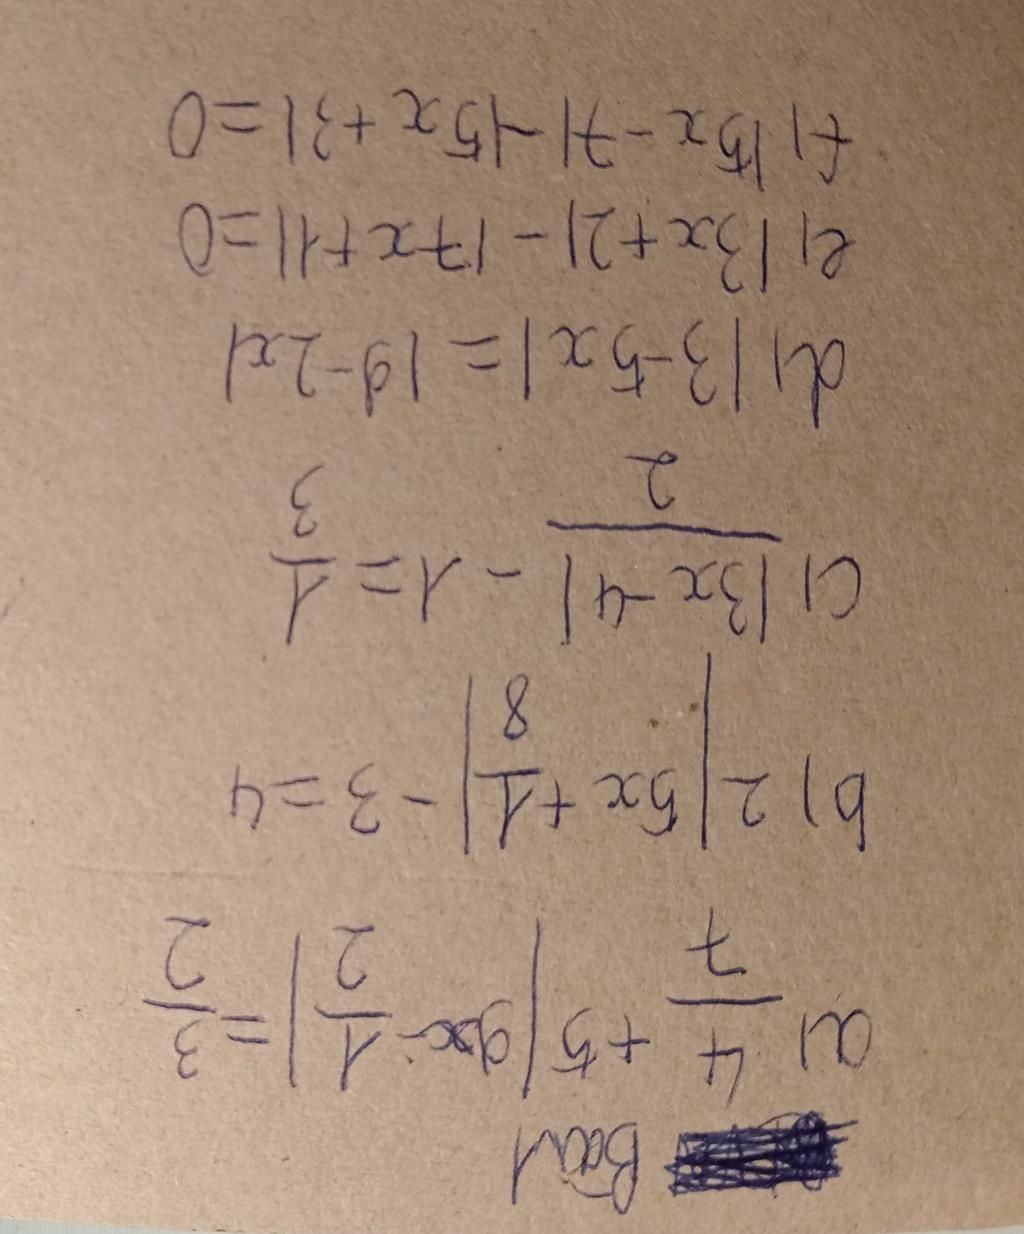 Bài 1
a) 4/7 + 5 |9x - 1/2| = 3/2
b) 2 |5x + 1/8| - 3 = 4
c) |3x - 4|/2 - 1 = 1/3
d) |3 - 5x| = |9 - 2x|
e) |3x + 2| - |7x + 1| = 0
f) |5x - 7| - |5x + 3| = 0